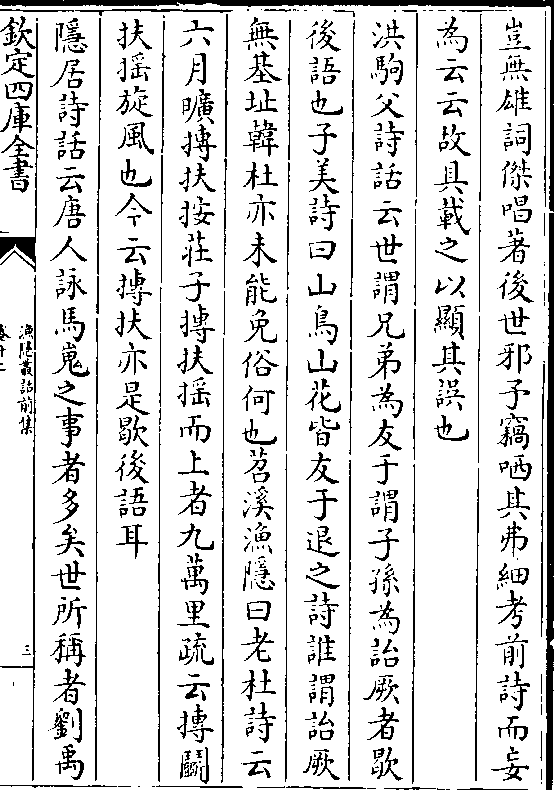 豈無雄詞傑唱著後世邪予竊哂其弗細考前詩而妄
為云云故具載之以顯其誤也
洪駒父詩話云世謂兄弟為友于謂子孫為詒厥者歇
後語也子美詩曰山鳥山花皆友于退之詩誰謂詒厥
無基址韓杜亦未能免俗何也苕溪漁隱曰老杜詩云
六月曠摶扶按莊子摶扶揺而上者九萬里疏云摶鬭
扶揺旋風也今云摶扶亦是歇後語耳
隱居詩話云唐人詠馬嵬之事者多矣世所稱者劉禹
欽定四庫全書
漁隱叢話前集
卷十二
三